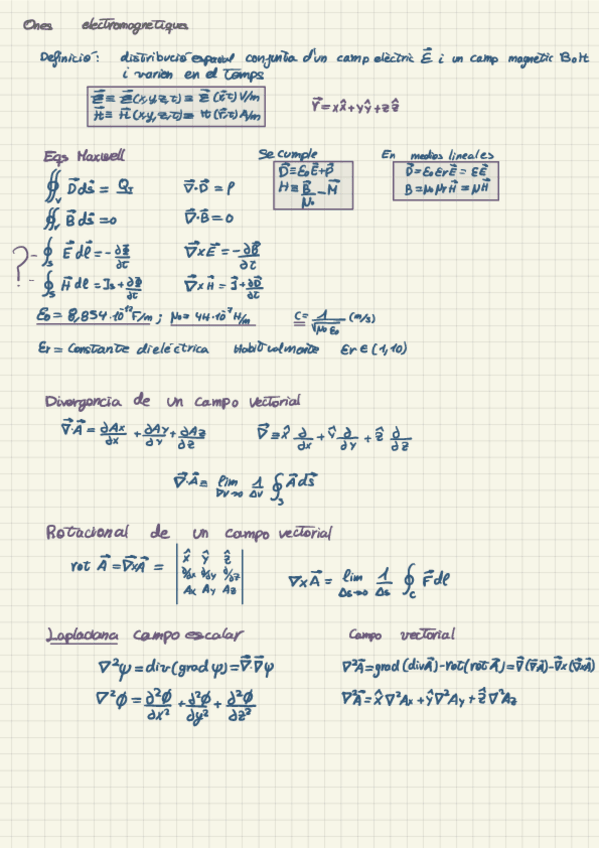 Ones electromagnetiques
Definició: distribució espacial conjunta d'un camp elèctric E⃗ i un camp magnetic B o H
i varien en el temps
E⃗ ≡ E⃗(x,y,z,t) ≡ E⃗(r⃗,t) V/m
H⃗ ≡ H⃗(x,y,z,t) ≡ H(r⃗,t) A/m
r⃗ = xx̂+yŷ+zẑ
Eqs Maxwell
∯ᵥ D⃗ds⃗ = Qs
∇⃗·D⃗ = ρ
∯ᵥ B⃗ds⃗ = 0
∇⃗·B⃗ = 0
?
- ∮s E⃗dl⃗ = -∂Φ/∂t
∇⃗xE⃗ = -∂B⃗/∂t
- ∮s H⃗dl = Is+∂Φ/∂t
∇⃗xH⃗ = J⃗+∂D⃗/∂t
Se cumple
D⃗ = ε₀E⃗+P⃗
H = B⃗/μ₀ - M⃗
En medios lineales
D⃗ = ε₀εrE⃗ = εE⃗
B = μ₀μrH⃗ = μH⃗
ε₀ = 8,854·10⁻¹² F/m ; μ₀ = 4π·10⁻⁷ H/m
c = 1/√(μ₀ε₀) (m/s)
εr = Constante dieléctrica Habitualmente εr ∈ (1,10)
Divergencia de un campo vectorial
∇⃗·A⃗ = ∂Ax/∂x + ∂Ay/∂y + ∂Az/∂z
∇⃗ ≡ x̂ ∂/∂x + ŷ ∂/∂y + ẑ ∂/∂z
∇⃗·A⃗ = lim ΔV→0 1/ΔV ∮s A⃗ds⃗
Rotacional de un campo vectorial
rot A⃗ = ∇⃗xA⃗ =
| x̂ ŷ ẑ |
| ∂/∂x ∂/∂y ∂/∂z |
| Ax Ay Az |
∇xA⃗ = lim Δs→0 1/Δs ∮c F⃗dl
Lapladana campo escalar
∇²ψ = div(grad ψ) = ∇⃗·∇⃗ψ
∇²φ = ∂²φ/∂x² + ∂²φ/∂y² + ∂²φ/∂z²
Campo vectorial
∇²A⃗ = grad(divA⃗)-rot(rotA⃗) = ∇⃗(∇⃗·A⃗)-∇⃗x(∇⃗xA⃗)
∇²A⃗ = x̂∇²Ax + ŷ∇²Ay + ẑ∇²Az